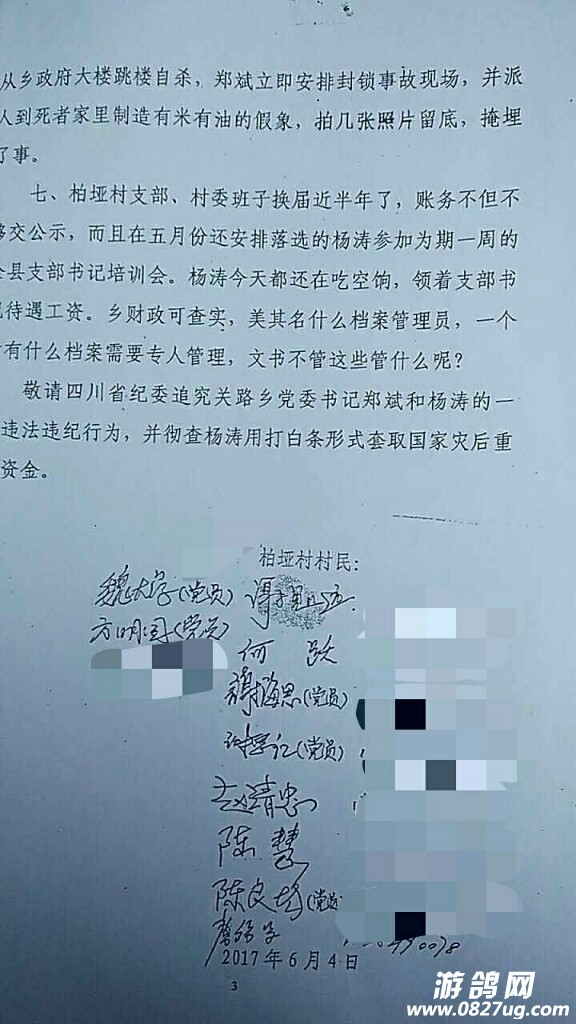 从乡政府大楼跳楼自杀，郑斌立即安排封锁事故现场，并派
人到死者家里制造有米有油的假象，拍几张照片留底，掩埋
了事。
七、柏垭村支部、村委班子换届近半年了，账务不但不
移交公示，而且在五月份还安排落选的杨涛参加为期一周的
全县支部书记培训会。杨涛今天都还在吃空饷，领着支部书
记待遇工资。乡财政可查实，美其名什么档案管理员，一个
有什么档案需要专人管理，文书不管这些管什么呢？
敬请四川省纪委追究关路乡党委书记郑斌和杨涛的一
违法违纪行为，并彻查杨涛用打白条形式套取国家灾后重
资金。
柏垭村村民：
(党员)
方明国(党员)
何 跃
(党员)
(党员)
赵清忠
陈 慧
陈良(党员
2017年6月4日
3
游鸽网
www.0827ug.com